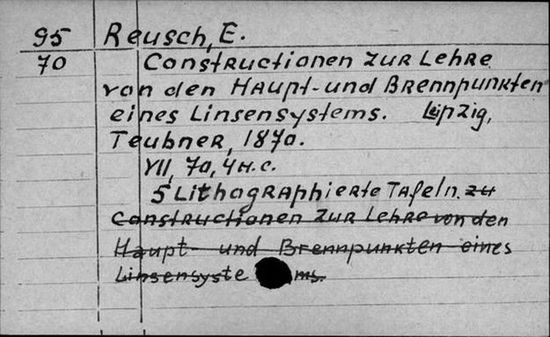 95 Reusch, E.
70 Constructionen zur Lehre
von den Haupt- und Brennpunkten
eines Linsensystems. Leipzig,
Teubner, 1870.
VII, 70, 4 н. с.
5 Lithographierte Tafeln. zu
Constructionen zur Lehre von den
Haupt- und Brennpunkten eines
Linsensystems.